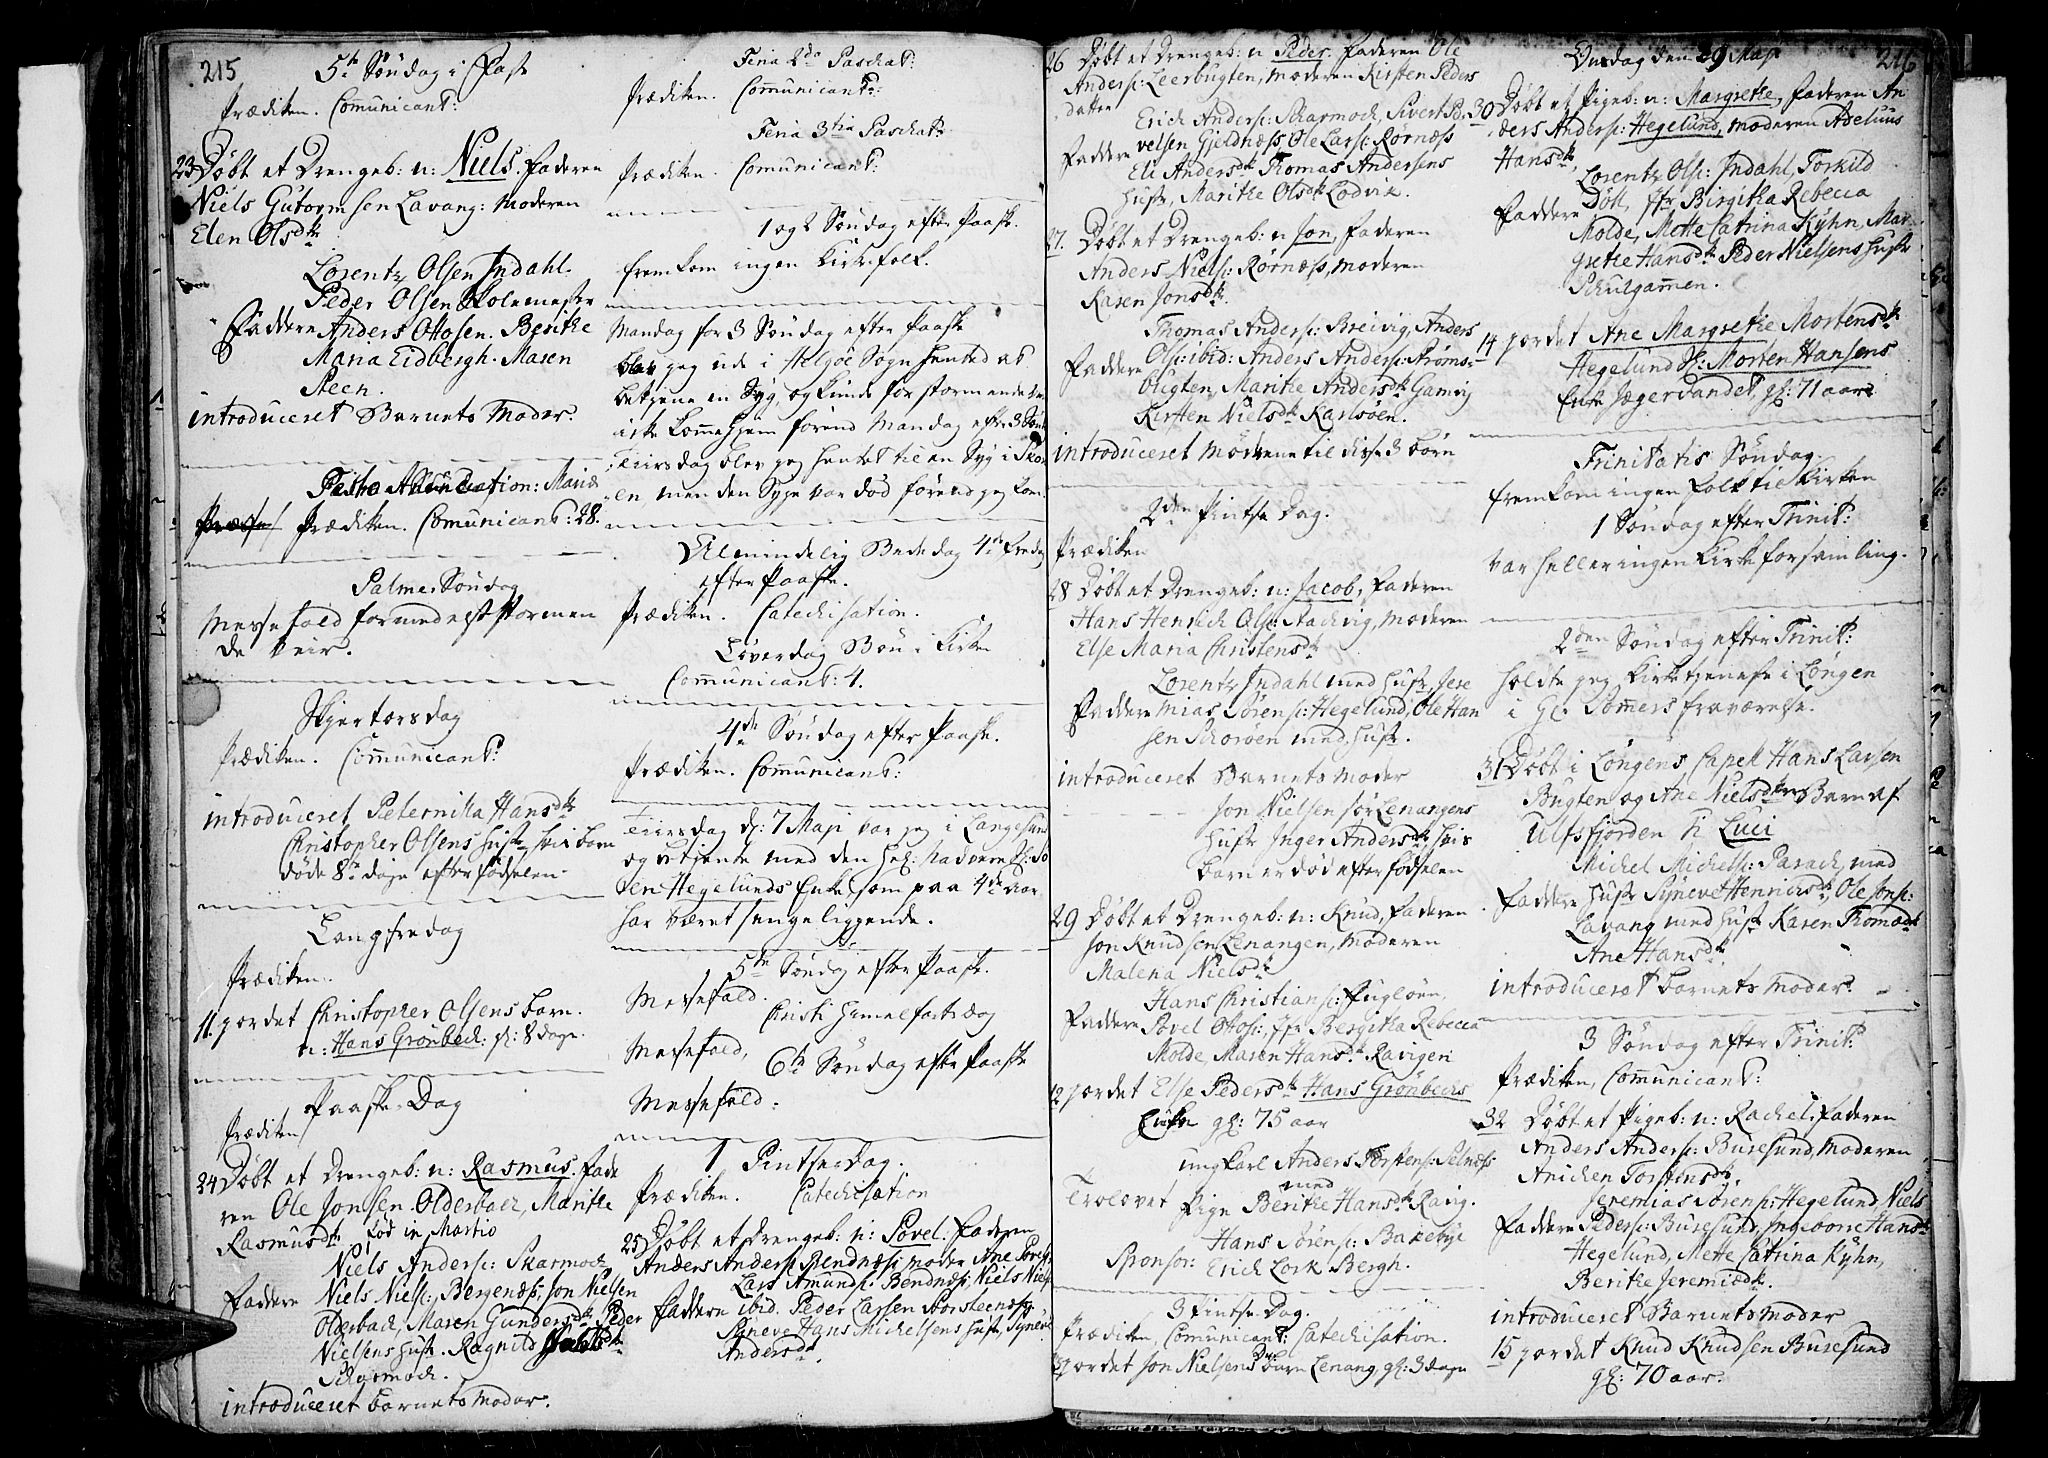 215
5te Søndag i Fast
Prædiken. Comunicant:
23 Døbt et Drengeb: n: Niels. Faderen
Niels Gutormsen Lavang: Moderen
Elen Olsdtr
Lorentz Olsen Indahl.
Peder Olsen Skolemester
Faddere Anders Ottosen. Beritke
Maria Eidbergh. Maren
Steen.
introduceret Barnets Moder.
Festo Annunciation: Mariæ
Prædiken. Comunicant: 28.
Palme Søndag
Messefald formedelst stormen
de Veir.
Skjertorsdag
Prædiken. Communicant:
introduceret Peternilla Hansdtr
Christopher Olsens Hustr, hvis barn
døde 8te dage efter fødselen.
Langfredag
Prædiken.
11 jordet Christopher Olsens barn.
n: Hans Grönbech: gl: 8 dage.
Paaske-Dag
Prædiken
24 Døbt et Drengeb: n: Rasmus. Fade
ren Ole Jonsen Olderbach, Maritke
Rasmusdtr fød in Martio
Niels Anders: Skarmoch
Faddere Niels Niels: Bergenes: Jon Nielsen
Olderbach, Maren Gundersdtr Peder
Nielsens Hustr. Ragnild
Scharmoch.
introduceret barnets Moder.
Feria 2da Paschat:
Prædiken. Communicant:
Feria 3tia Paschat:
Prædiken. Comunicant:
1 og 2 Søndag efter Paaske.
fremkom ingen Kirkefolk.
Mandag for 3 Søndag efter Paaske
blev jeg ude i Helgøe Sogn hented at
betjene en Syg, og kunde for stormende Veir
icke komme hjem førend Mandag efter 3 Sønd
Tiirsdag blev jeg hentet til en Syg i Skor
en, men den Syge var død førend jeg kom.
Almindelig Bededag 4de fredag
efter Paaske.
Prædiken. Catechisation.
Løverdag Bøn i Kirken
Communicant: 4.
4de Søndag efter Paaske.
Prædiken. Communicant:
Tiirsdag d: 7 Maji var jeg i Langesund
og betjente med den hel: Nadvere Sl: So
ren Hegelunds Enke, som paa 4de aar
har været sengeliggende.
5te Søndag efter Paaske.
Messefald.
Christi Himmelfartsdag
Messefald,
6te Søndag efter Paaske
Messefald.
1 Pintsedag.
Prædiken. Catechisation
25 Døbt et Drengeb: n: Povel: Faderen
Anders Anders: Bendnæs: moder Ane Povels
Lars Amunds: Bendnæs: Niels Niels:
Faddere ibid. Peder Larsen Storsteenes,
Synneve Hans Michelsens Hustr, Synneve
Andersdtr.
26 Døbt et Drengeb: n: Peder. Faderen Ole
Anders: Leerbugten, Moderen Kirsten Peders
datter
Erich Anders: Skarmoch, Sivert Po
Faddere velsen Gieldnæss, Ole Lars: Rørnæss
Eli Andersdtr Thomas Andersens
Hustr, Maritke Olsdtr Lodvik.
27. Døbt et Drengeb: n Jon, Faderen
Anders Niels: Rørnæss, Moderen
Karen Jonsdtr.
Thomas Anders: Breivig, Anders
Faddere Ols: ibid: Anders Anders: Strøms
bugten, Maritke Andersdtr Gamvig
Kirsten Nielsdtr Karlsøen.
introduceret Mødrene til disse 3 børn
2den Pintse Dag.
Prædiken
28 Døbt et Drengeb: n: Jacob, Faderen
Hans Henrich Ols: Stachvig, Moderen
Else Maria Christensdtr
Lorentz Indahl med Hustr, Jere
Faddere mias Sørens: Hegelund, Ole Han
sen Schorøen med Hustr.
introduceret Barnets Moder
Jon Nielsen Sør Lenangens
Hustr Inger Andersdtr, hvis
barn er død efter fødselen
29 Døbt et Drengeb: n: Knud, Faderen
Jon Knudsen Lenangen, Moderen
Malena Nielsdtr
Hans Christians: Fugløen,
Faddere Povel Ottos: Jfr Bergitha Rebecca
Molde, Maren Hansdtr Ravigen
12 jordet Else Pedersdtr Hans Grönbechs
Enke gl: 75 aar
ungkarl Anders Torstens: Selnæss
med
Trolovet Pige Beritke Hansdtr Ravig.
Hans Sørens: Bakebye
Sponsor: Erich Lork Bergh.
3 Pintse Dag.
Prædiken, Comunicant: Catechisation.
jordet Jon Nielsens barn Lenang, gl: 3 dage
216
Onsdag den 29 Maji
30 Døbt et Pigeb: n: Margretke, Faderen An
ders Anders: Hegelund, Moderen Adeluus
Hansdtr,
Lorentz Ols: Indahl, Torkild
Faddere Døll, Jfr Birgitha Rebecca
Molde, Mette Catrina Kyhn, Mar
gretke Hansdtr Peder Nielsens Hustr
Schulgammen.
14 jordet Ane Margretke Mortensdtr
Hegelund Sl: Morten Hansens
Enke Jægervandet, gl: 71 aar
Trinitatis Søndag.
fremkom ingen folk til Kirken
1 Søndag efter Trinit:
var heller ingen Kirkeforsamling.
2den Søndag efter Trinit:
holdte jeg Kirketjeneste i Löngen
i Hr. Sommers fraværelse.
31 Døbt i Löngens Capell Hans Larsen
Bugten og Ane Nielsdtrs Barn af
Ulfsfjorden n Luci
Michel Michels: Sarach, med
Faddere Hustr Synneve Henrichsdtr, Ole Jons:
Lavang med Hustr Karen Thomædtr
Ane Hansdtr
introduceret barnets Moder.
3 Søndag efter Trinit:
Prædiken, Communicant:
32 Døbt et Pigeb: n: Rachel. Faderen
Anders Anders: Buresund, Moderen
Anichen Torstensdtr
Jeremias Sørens: Hegelund, Niels
Faddere Peders: Buresund, Ingeborre Hansdtr
Hegelund, Mette Catrina Kyhn,
Beritke Jeremiædtr.
introduceret Barnets Moder
15 jordet Knud Knudsen Buresund
gl: 70 aar.